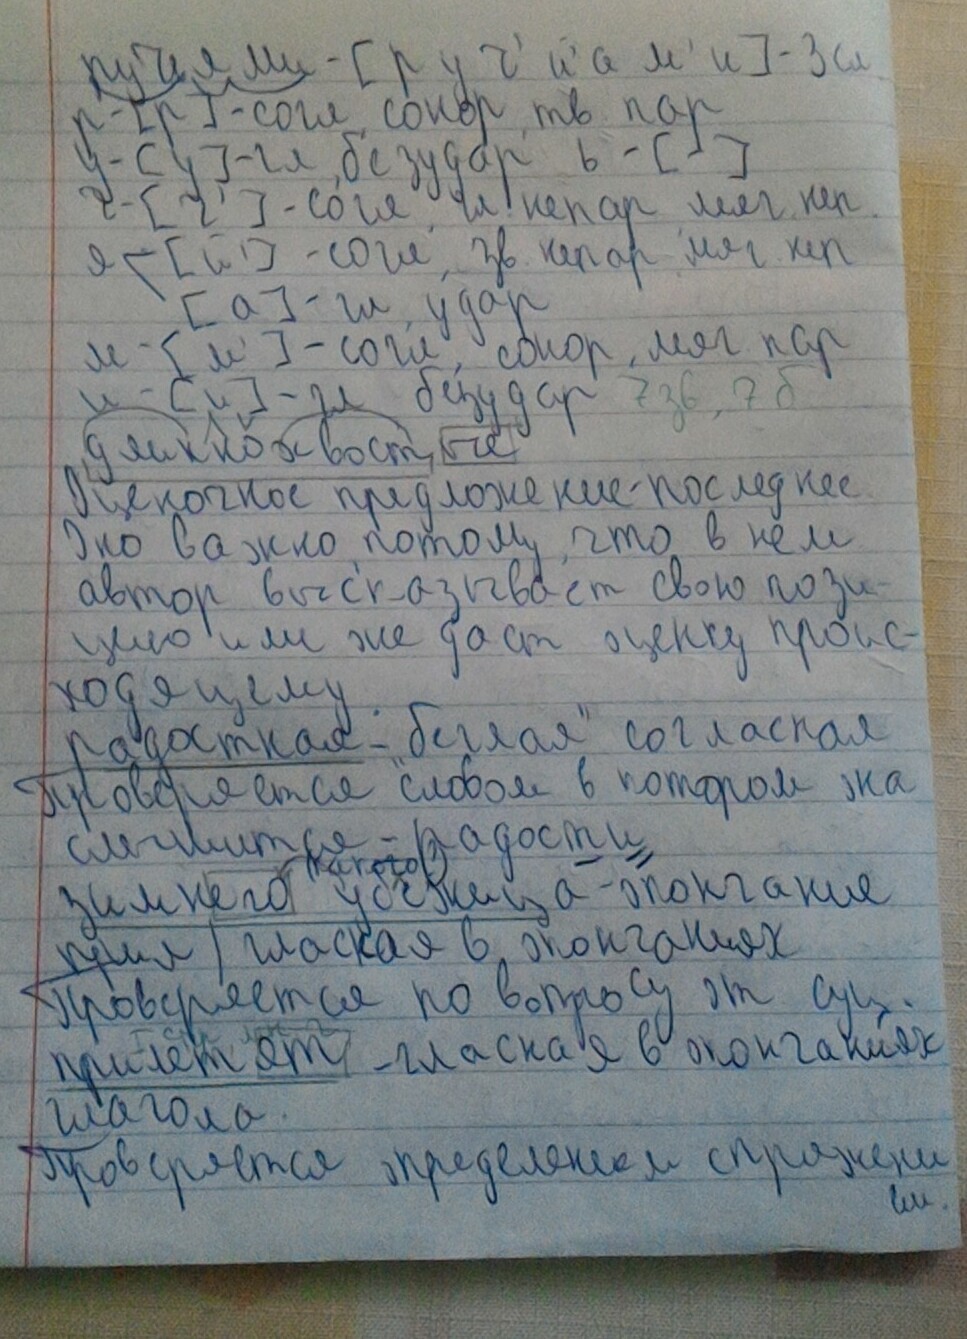 ручьями - [р у ч' й' а м' и] - 3 сл
р - [р] - согл, сонор, тв. пар
у - [у] - гл, безудар ь - [-]
ч - [ч'] - согл, гл. непар мяг. неп.
я [й'] - согл, зв. непар, мяг. неп
[а] - гл, удар
м - [м'] - согл, сонор, мяг. пар
и - [и] - гл безудар 7 зв, 7 б
длиннохвост ые
Оценочное предложение - последнее.
Оно важно потому, что в нём
автор высказывает свою пози-
цию или же даст оценку проис-
ходящему.
радостная - "беглая" согласная
Проверяется словом в котором она
слышится - радости
(какого?)
зимнего убежища - окончание
прил, гласная в окончаниях
Проверяется по вопросу от сущ.
прилетят - гласная в окончаниях
глагола.
Проверяется определением спряжени
ем.